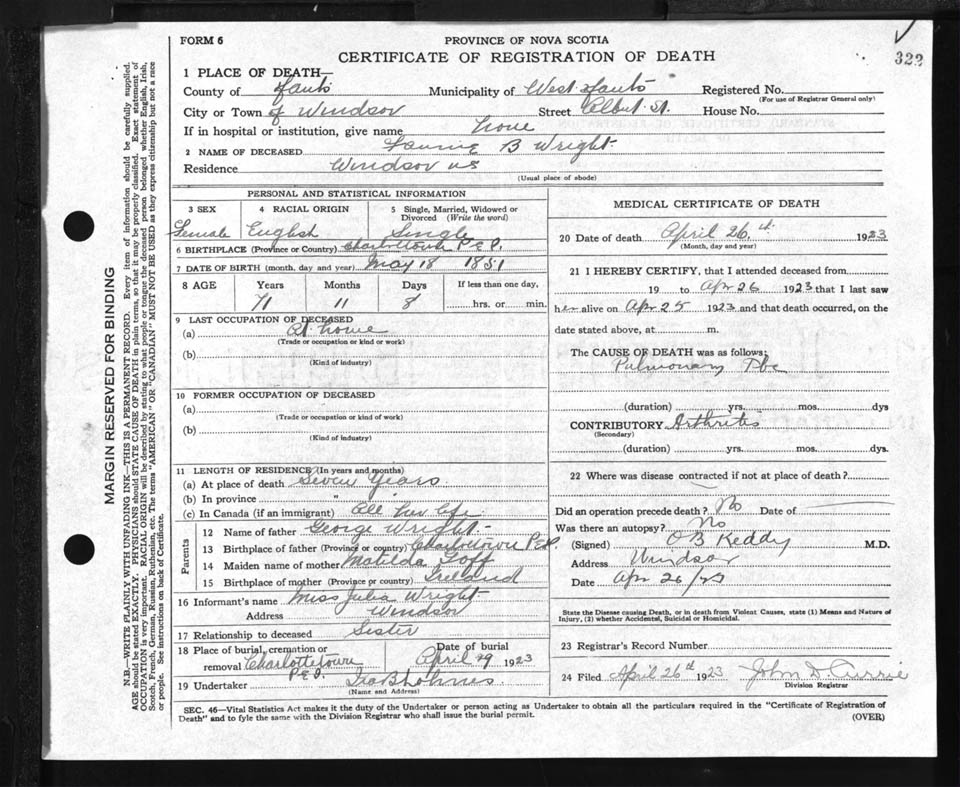 322
FORM 6
PROVINCE OF NOVA SCOTIA
CERTIFICATE OF REGISTRATION OF DEATH
1 PLACE OF DEATH—
County of Hants Municipality of West Hants Registered No.
(For use of Registrar General only)
City or Town of Windsor Street Albert St. House No.
If in hospital or institution, give name none
2 NAME OF DECEASED Fannie B Wright
Residence Windsor NS
(Usual place of abode)
PERSONAL AND STATISTICAL INFORMATION
3 SEX Female
4 RACIAL ORIGIN English
5 Single, Married, Widowed or Divorced (Write the word) Single
6 BIRTHPLACE (Province or Country) Charlottetown P.E.I.
7 DATE OF BIRTH (month, day and year) May 18 1851
8 AGE Years Months Days If less than one day,
71 11 8 hrs. or min.
9 LAST OCCUPATION OF DECEASED
(a) At home
(Trade or occupation or kind of work)
(b)
(Kind of industry)
10 FORMER OCCUPATION OF DECEASED
(a)
(Trade or occupation or kind of work)
(b)
(Kind of industry)
11 LENGTH OF RESIDENCE (In years and months)
(a) At place of death Seven Years
(b) In province "
(c) In Canada (if an immigrant) All her life
Parents
12 Name of father George Wright
13 Birthplace of father (Province or country) Charlottetown P.E.I.
14 Maiden name of mother Matilda Goff
15 Birthplace of mother (Province or country) Ireland
16 Informant's name Miss Julia Wright
Address Windsor
17 Relationship to deceased Sister
18 Place of burial, cremation or removal Charlottetown P.E.I.
Date of burial April 29 1923
19 Undertaker
(Name and Address)
MEDICAL CERTIFICATE OF DEATH
20 Date of death April 26th 1923
(Month, day and year)
21 I HEREBY CERTIFY, that I attended deceased from
19 to Apr 26 1923 that I last saw
her alive on Apr 25 1923 and that death occurred, on the
date stated above, at m.
The CAUSE OF DEATH was as follows:
Pulmonary Tbc
(duration) yrs. mos. dys
CONTRIBUTORY Arthritis
(Secondary)
(duration) yrs. mos. dys.
22 Where was disease contracted if not at place of death?
Did an operation precede death? No Date of
Was there an autopsy? No
(Signed) O B Keddy M.D.
Address Windsor
Date Apr 26/23
State the Disease causing Death, or in death from Violent Causes, state (1) Means and Nature of
Injury, (2) whether Accidental, Suicidal or Homicidal.
23 Registrar's Record Number
24 Filed April 26th 1923 John D. Currie
Division Registrar
SEC. 46—Vital Statistics Act makes it the duty of the Undertaker or person acting as Undertaker to obtain all the particulars required in the "Certificate of Registration of
Death" and to fyle the same with the Division Registrar who shall issue the burial permit.
(OVER)
MARGIN RESERVED FOR BINDING
N.B.—WRITE PLAINLY WITH UNFADING INK—THIS IS A PERMANENT RECORD. Every item of information should be carefully supplied.
AGE should be stated EXACTLY. PHYSICIANS should STATE CAUSE OF DEATH in plain terms, so that it may be properly classified. Exact statement of
OCCUPATION is very important. RACIAL ORIGIN will be described by stating to what people or tongue the deceased person belonged whether English, Irish,
Scotch, French, German, Russian, Ruthenian, etc. The terms "AMERICAN" OR "CANADIAN" MUST NOT BE USED as they express citizenship but not a race
or people. See instructions on back of Certificate.